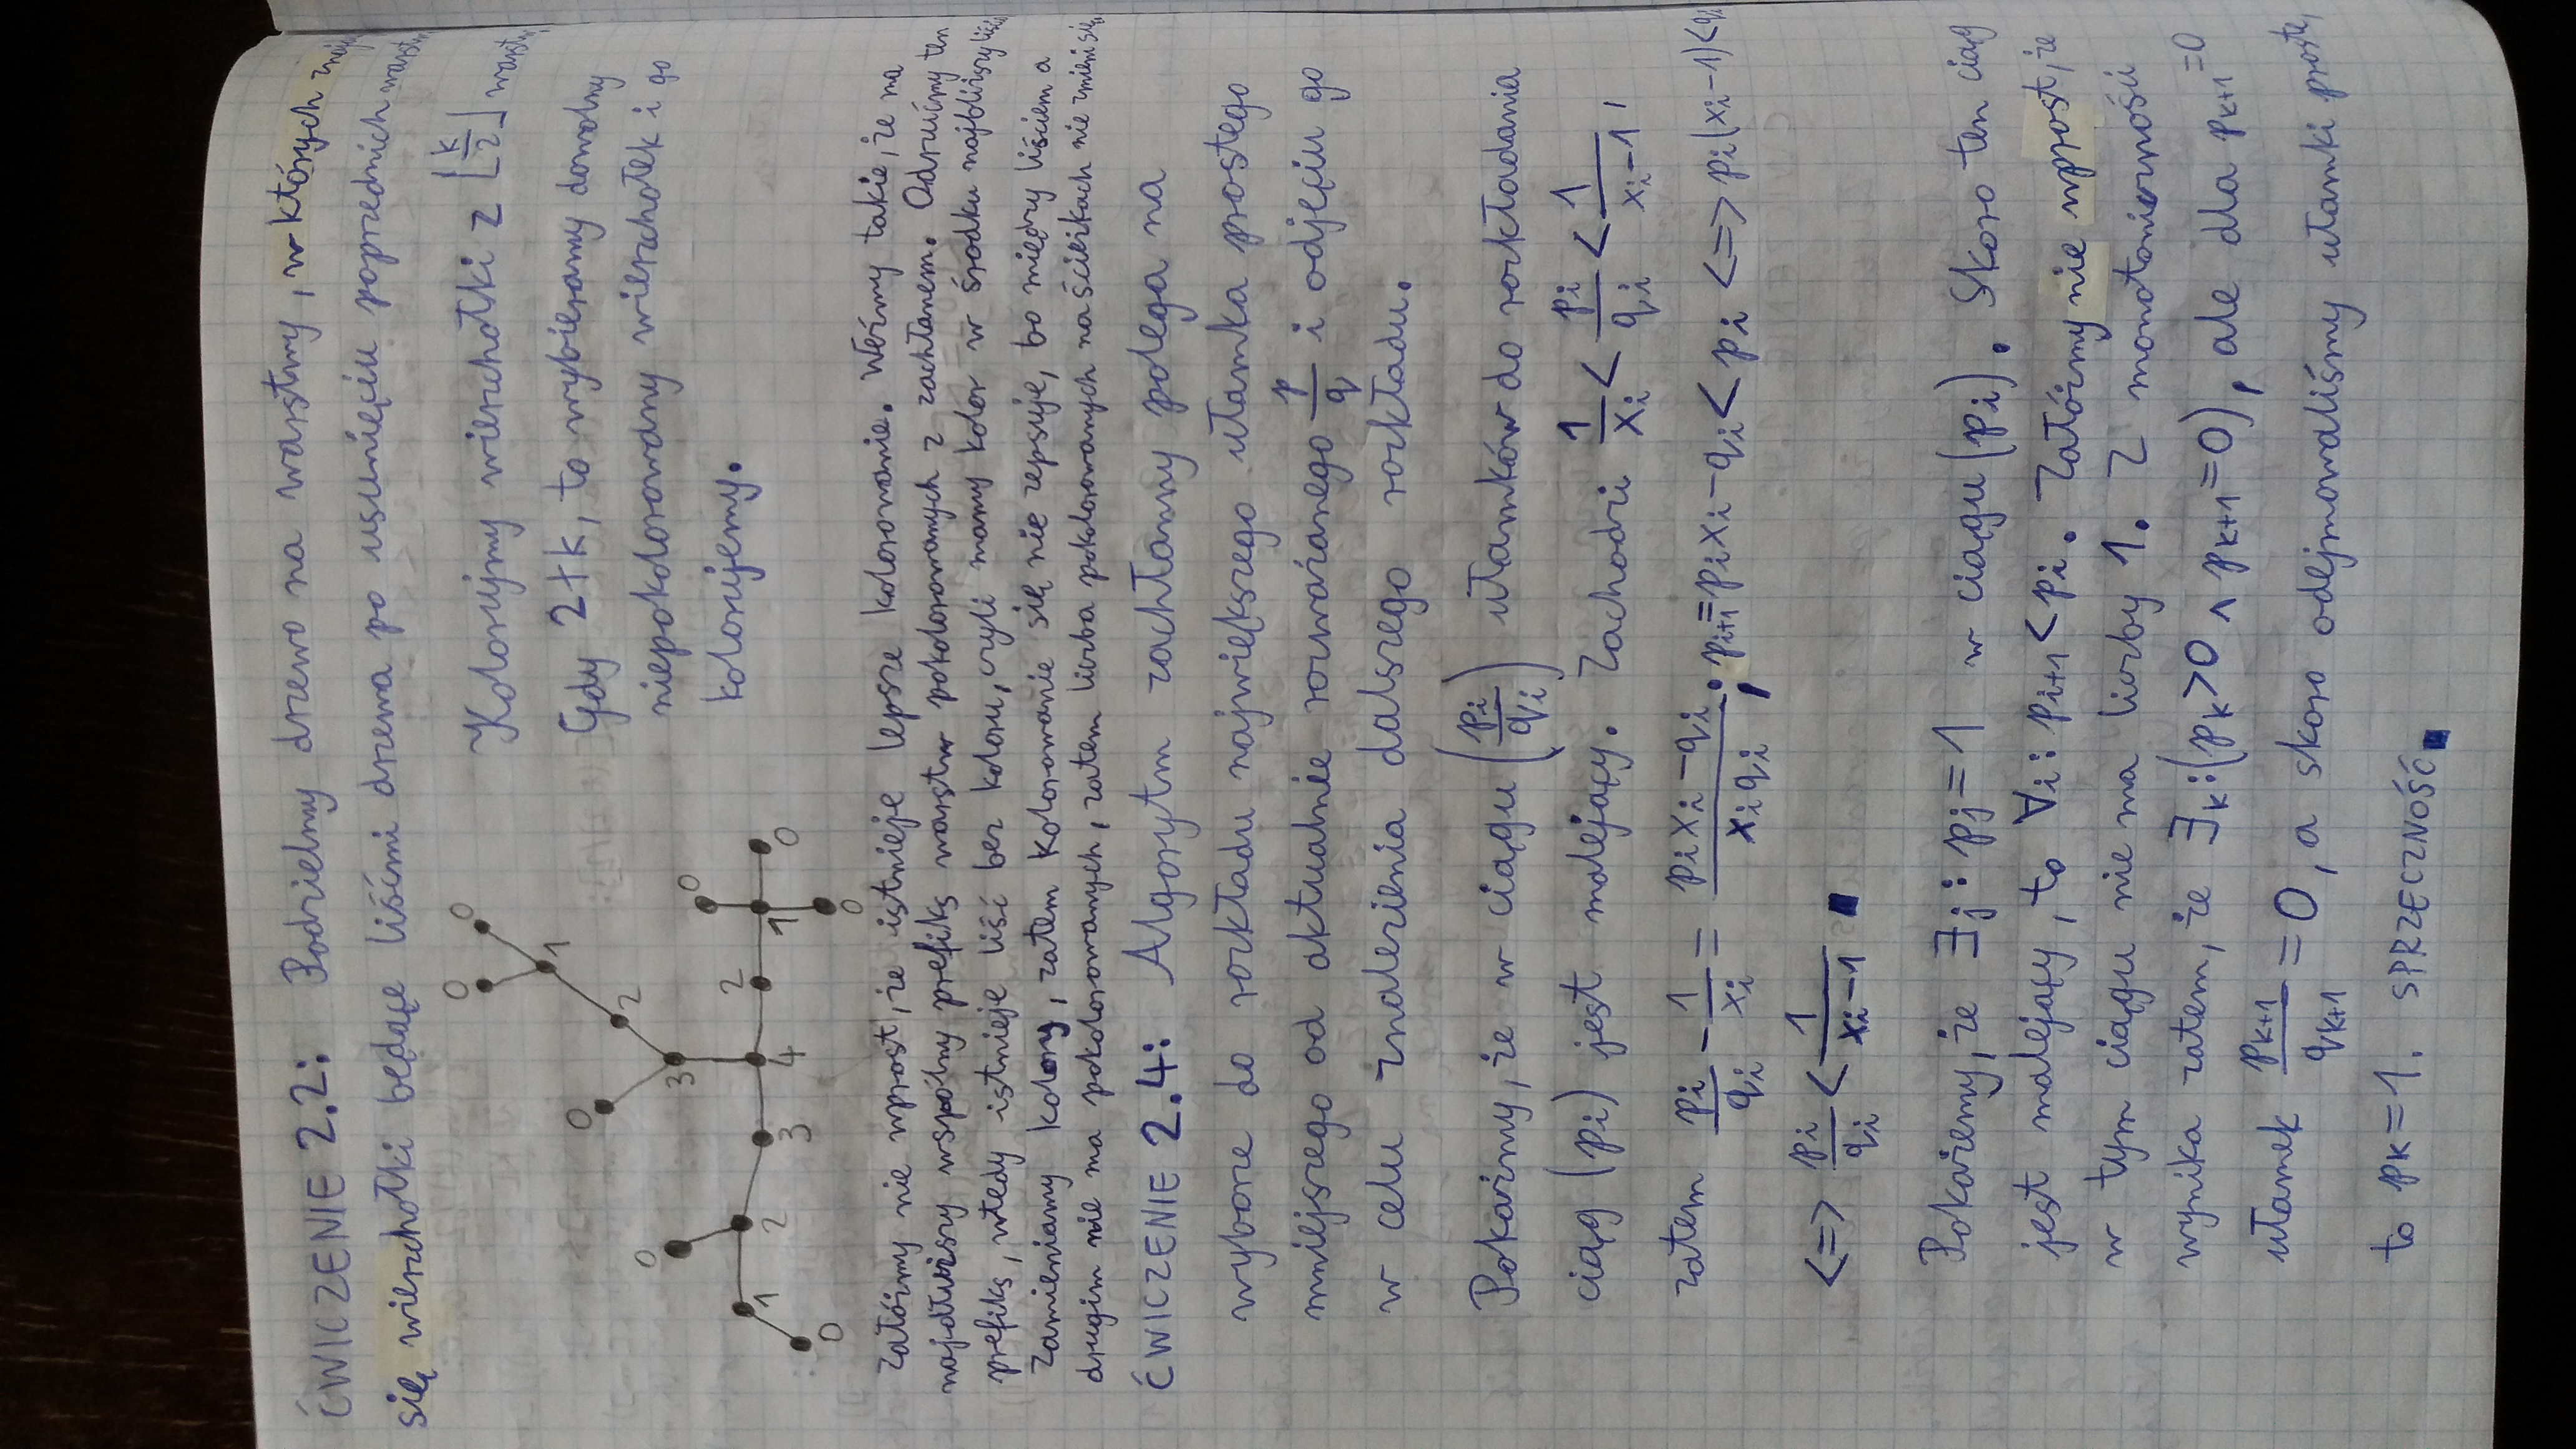 ĆWICZENIE 2.2: Podzielmy drzewo na warstwy, w których
się wierzchołki będące liśćmi drzewa po usunięciu poprzednich
Kolorujmy wierzchołki z ⌊k/2⌋ warstw.
Gdy 2∤k, to wybieramy dowolny
niepokolorowany wierzchołek i go
kolorujemy.
0 0
1
0
2
0
3
0
2
1 2 3 4 1 0
0
0
Załóżmy nie wprost, że istnieje lepsze kolorowanie. Weźmy takie, że ma
najdłuższy wspólny prefiks warstw pokolorowanych z zachłanem. Odrzućmy ten
prefiks, wtedy istnieje liść bez koloru, czyli mamy kolor w środku najbliższy
Zamieniamy kolory, zatem kolorowanie się nie zepsuje, bo między liściem a
drugim nie ma pokolorowanych, zatem liczba pokolorowanych na ścieżkach nie zmieni się.
ĆWICZENIE 2.4: Algorytm zachłanny polega na
wyborze do rozkładu największego ułamka prostego
mniejszego od aktualnie rozważanego p/q i odjęciu go
w celu znalezienia dalszego rozkładu.
Pokażmy, że w ciągu (p_i/q_i) ułamków do rozkładania
ciąg (p_i) jest malejący. Zachodzi 1/x_i < p_i/q_i < 1/(x_i-1),
zatem p_i/q_i - 1/x_i = (p_i x_i - q_i)/(x_i q_i); p_{i+1} = p_i x_i - q_i < p_i <=> p_i(x_i-1) < q_i
<=> p_i/q_i < 1/(x_i-1) ■
Pokażemy, że ∃j: p_j = 1 w ciągu (p_i). Skoro ten ciąg
jest malejący, to ∀i: p_{i+1} < p_i. Załóżmy nie wprost, że
w tym ciągu nie ma liczby 1. Z monotoniczności
wynika zatem, że ∃_k: (p_k > 0 ∧ p_{k+1} = 0), ale dla p_{k+1} = 0
ułamek p_{k+1}/q_{k+1} = 0, a skoro odejmowaliśmy ułamki proste,
to p_k = 1. SPRZECZNOŚĆ ■